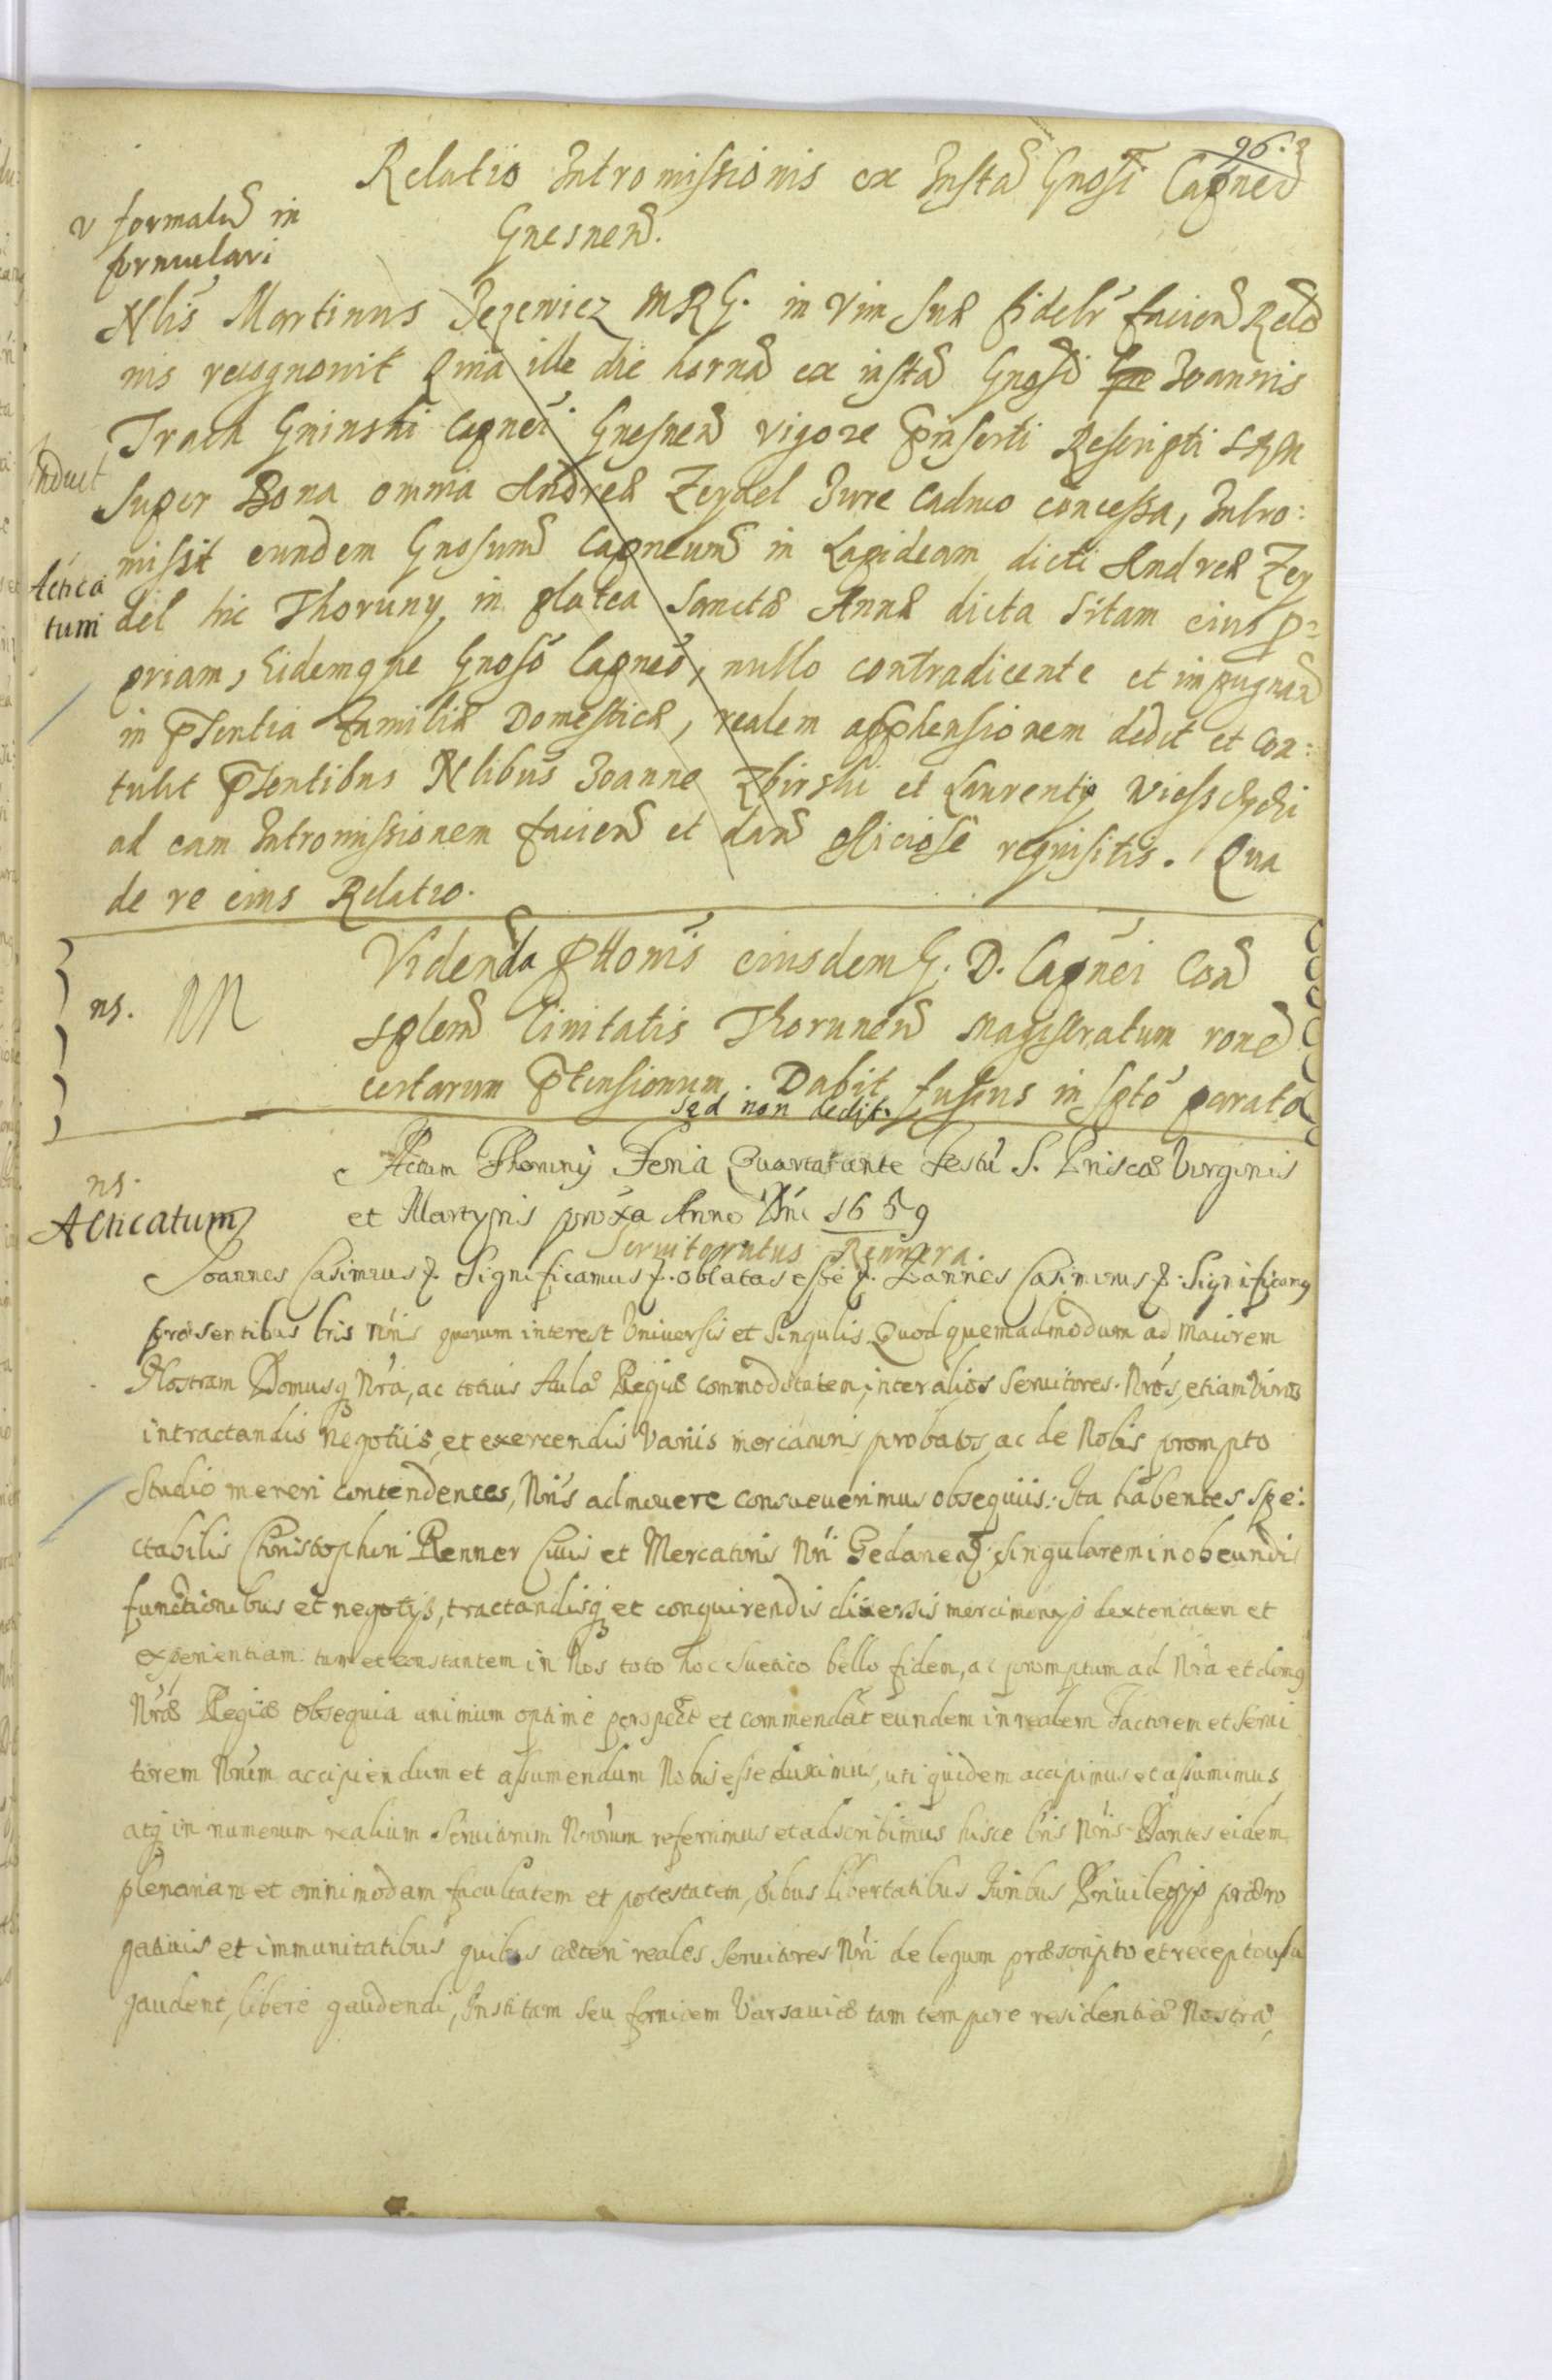 96. 3
Relatio Intromissionis ex Insta Gnosi Capnei
Gnesnen.
v formalia in
formulari
Nlis Martinus Jezewicz MRG. in vim suæ fidelr facien Relo
nis recognovit Quia ille die horna ex insta Gnosi Joannis
Trach Gninski Capnei Gnesnen vigore pinserti Rescripti SRM
Induct
super Bona omnia Andreæ Zeydel Jure Caduco concessa, Intro:
missit eundem Gnosum Capneum in Lapideam dicti Andreæ Zey
Actica
tum
del hic Thoruny in platea Sanctæ Annæ dicta sitam eius p=
priam, Eidemque Gnoso Capneo, nullo contradicente et impugnan
in pSentia Familiæ Domesticæ, realem apphensionem dedit et Con:
tulit pSentibus Nlibus Joanne Zbirski et Laurentij
ad eam Intromissionem facien et dan officiose requisitis. Qua
de re eius Relatio.
ns. M
Videnda pttonis eiusdem G. D. Capnei Con
splem Civitatis Thorunen Magistratum rone
certarum ptensionum. Dabit fusius in spto parato
sed non dedit.
Actum Thoruny Feria Quarta ante Festu S. Priscæ Virginis
et Martyris proxa Anno Dni 1659
ns.
Acticatum
Servitoratus Rennera.
Joannes Casimirus &. Significamus &. oblatas esse &. Joannes Casimirus &. Significamg
præsentibus lris nris quorum interest Universis et Singulis Quod quemadmodum ad Maiorem
Nostram Domusq Nra, ac totius Aulæ Regiæ commoditatem, inter alios Servitores Nros, etiam Viros
in tractandis Negotiis, et exercendis Variis mercaturis probatos, ac de Nobis prompto
Studio mereri contendentes, Nris admovere consueverimus obsequiis: Ita habentes Spe:
ctabilis Christophori Renner Civis et Mercatoris Nri Gedanen Singularem in obeundis
functionibus et negotijs, tractandisq et conquirendis diversis mercimonijs dexteritatem et
experientiam: tum et constantem in Nos toto hoc Suetico bello fidem, ac promptum ad Nra et domg
Nræ Regiæ Obsequia animum optime perspect et commendat eundem in realem Factorem et Servi
torem Nrum accipiendum et assumendum Nobis esse duximus, uti quidem accipimus et assumimus,
atq in numerum realium Servitorum Nrorum referimus et adscribimus hisce lris Nris Dantes eidem
plenariam et omnimodam facultatem et potestatem, oibus libertatibus Juribus Privilegijs præro
gativis et immunitatibus quibus cæteri reales Servitores Nri de legum præscripto et recepto usu
gaudent, libere gaudendi, Institam seu fornicem Varsaviæ tam tempore residentiæ Nostræ,